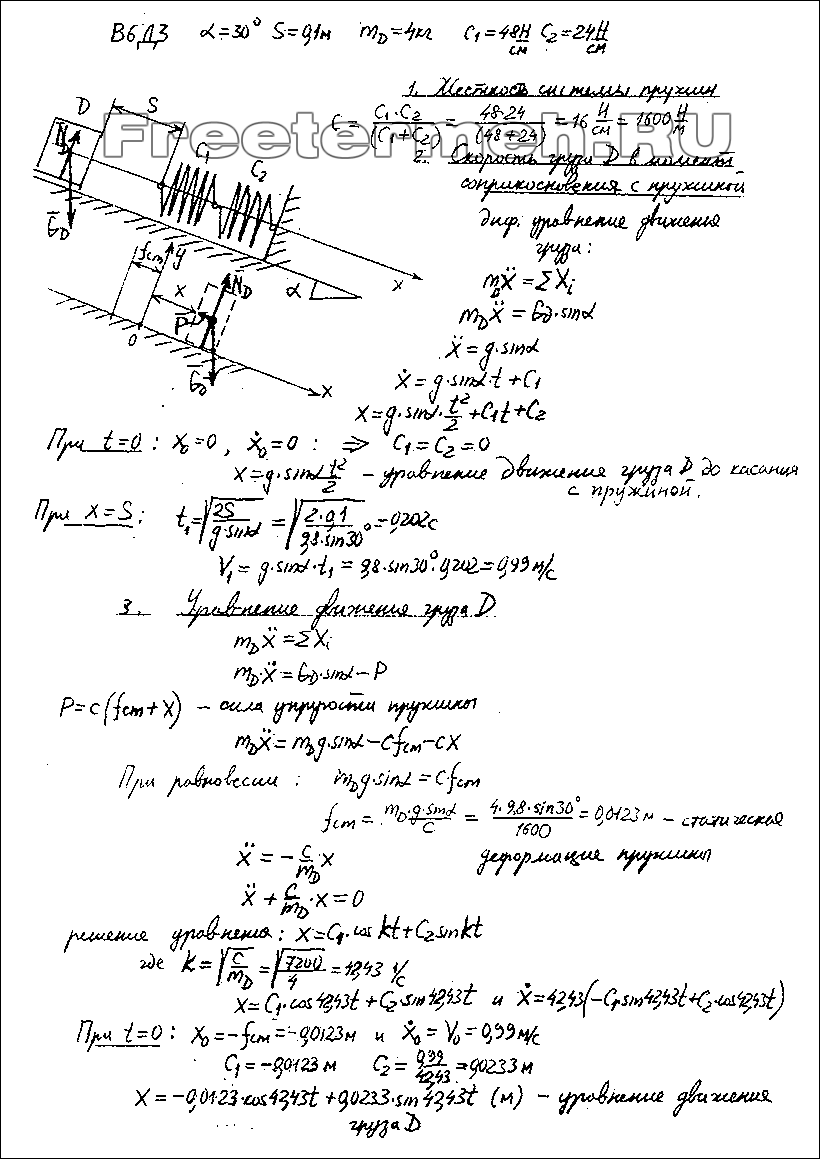 В6Д3 α=30° S=0,1м m_D=4кг C₁=48 Н/см C₂=24 Н/см
1. Жесткость системы пружин
D S
N_D C₁ C₂
C = C₁·C₂/(C₁+C₂) = 48·24/(48+24) = 16 Н/см = 1600 Н/м
Freetermen.RU
2. Скорость груза D в момент
соприкосновения с пружиной
диф. уравнение движения
груза:
G_D
f_ст y
α x
x N_D
P
0 G_D x
m_D ẍ = ΣXᵢ
m_D ẍ = G_D·sinα
ẍ = g·sinα
ẋ = g·sinα·t + C₁
x = g·sinα·t²/2 + C₁t + C₂
При t=0 : x₀=0, ẋ₀=0 : ⇒ C₁=C₂=0
x = g·sinα t²/2 – уравнение движения груза D до касания
с пружиной.
При x=S : t₁ = √(2S/g·sinα) = √(2·0,1/9,8·sin30°) = 0,202с
V₁ = g·sinα·t₁ = 9,8·sin30°·0,202 = 0,99 м/с
3. Уравнение движения груза D
m_D ẍ = ΣXᵢ
m_D·ẍ = G_D·sinα – P
P = c(f_ст + x) – сила упругости пружины
m_D ẍ = m_D g·sinα – c f_ст – cx
При равновесии : m_D g·sinα = c f_ст
f_ст = m_D·g·sinα/c = 4·9,8·sin30°/1600 = 0,0123 м – статическая
деформация пружины
ẍ = –c/m_D·x
ẍ + c/m_D·x = 0
решение уравнения: x = C₁·cos kt + C₂ sin kt
где k = √(c/m_D) = √(7200/4) = 42,43 1/с
x = C₁·cos42,43t + C₂·sin42,43t и ẋ = 42,43(–C₁sin42,43t + C₂·cos42,43t)
При t=0 : x₀ = –f_ст = –0,0123м и ẋ₀ = V₀ = 0,99 м/с
C₁ = –0,0123 м C₂ = 0,99/42,43 = 0,0233 м
x = –0,0123·cos42,43t + 0,0233·sin42,43t (м) – уравнение движения
груза D